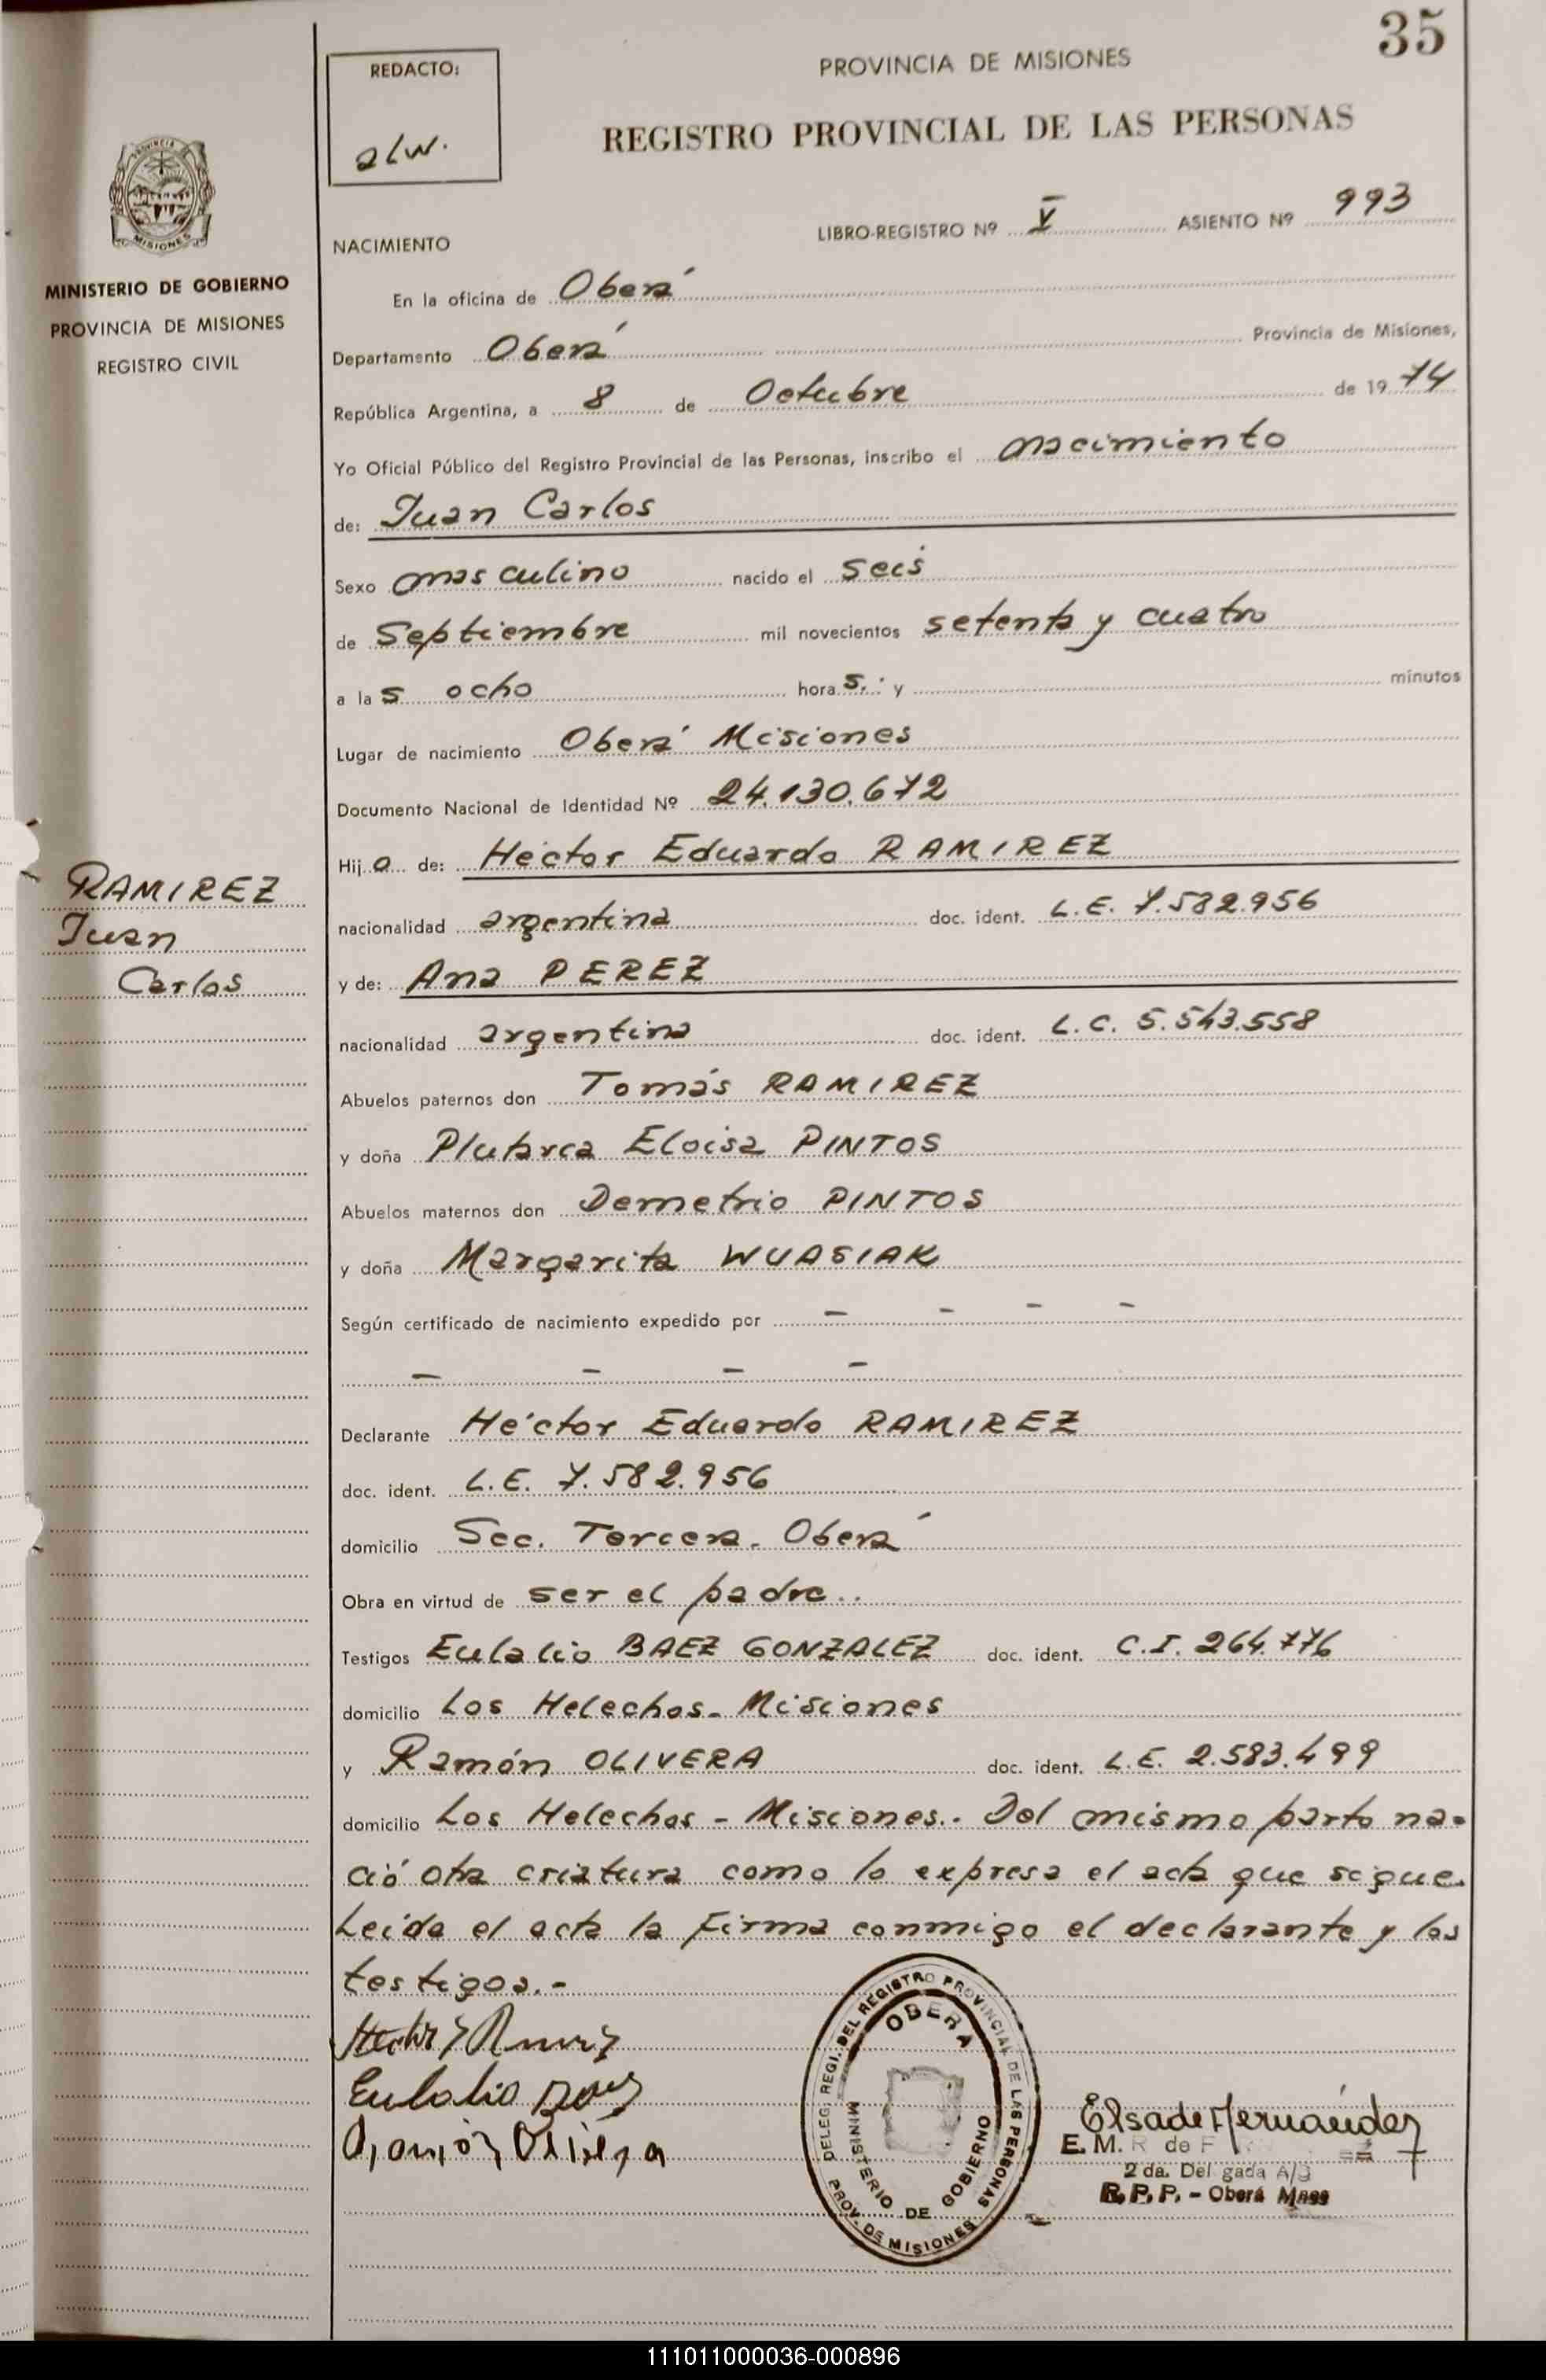 35
REDACTO:
alw.
PROVINCIA DE MISIONES
REGISTRO PROVINCIAL DE LAS PERSONAS
PROVINCIA
MISIONES
MINISTERIO DE GOBIERNO
PROVINCIA DE MISIONES
REGISTRO CIVIL
NACIMIENTO
LIBRO-REGISTRO Nº V ASIENTO Nº 993
En la oficina de Oberá
Departamento Oberá Provincia de Misiones,
República Argentina, a 8 de Octubre de 1974
Yo Oficial Público del Registro Provincial de las Personas, inscribo el nacimiento
de: Juan Carlos
Sexo masculino nacido el seis
de Septiembre mil novecientos setenta y cuatro
a las ocho horas.- y minutos
Lugar de nacimiento Oberá Misiones
Documento Nacional de Identidad Nº 24.130.672
Hijo de: Héctor Eduardo RAMIREZ
RAMIREZ
Juan
Carlos
nacionalidad argentina doc. ident. L.E. 7.582.956
y de: Ana PEREZ
nacionalidad argentina doc. ident. L.C. 5.543.558
Abuelos paternos don Tomás RAMIREZ
y doña Plutarca Eloisa PINTOS
Abuelos maternos don Demetrio PINTOS
y doña Margarita WUASIAK
Según certificado de nacimiento expedido por - - - -
- - - -
Declarante Héctor Eduardo RAMIREZ
doc. ident. L.E. 7.582.956
domicilio Sec. Tercera. Oberá
Obra en virtud de ser el padre..
Testigos Eulalio BAEZ GONZALEZ doc. ident. C.I. 264.776
domicilio Los Helechos- Misiones
y Ramón OLIVERA doc. ident. L.E. 2.583.499
domicilio Los Helechos - Misiones.- Del mismo parto na-
ció otra criatura como lo expresa el acta que sigue.
Leida el acta la firma conmigo el declarante y los
testigos.-
Eulalio Baez
Ramón Olivera
DELEG. REGI. DEL REGISTRO PROVINCIAL DE LAS PERSONAS
OBERA
MINISTERIO DE GOBIERNO
PROV. DE MISIONES
Elsa de Hernández
E. M. R de F
2 da. Del gada A/C
R. P. P. - Oberá Mnes
111011000036-000896